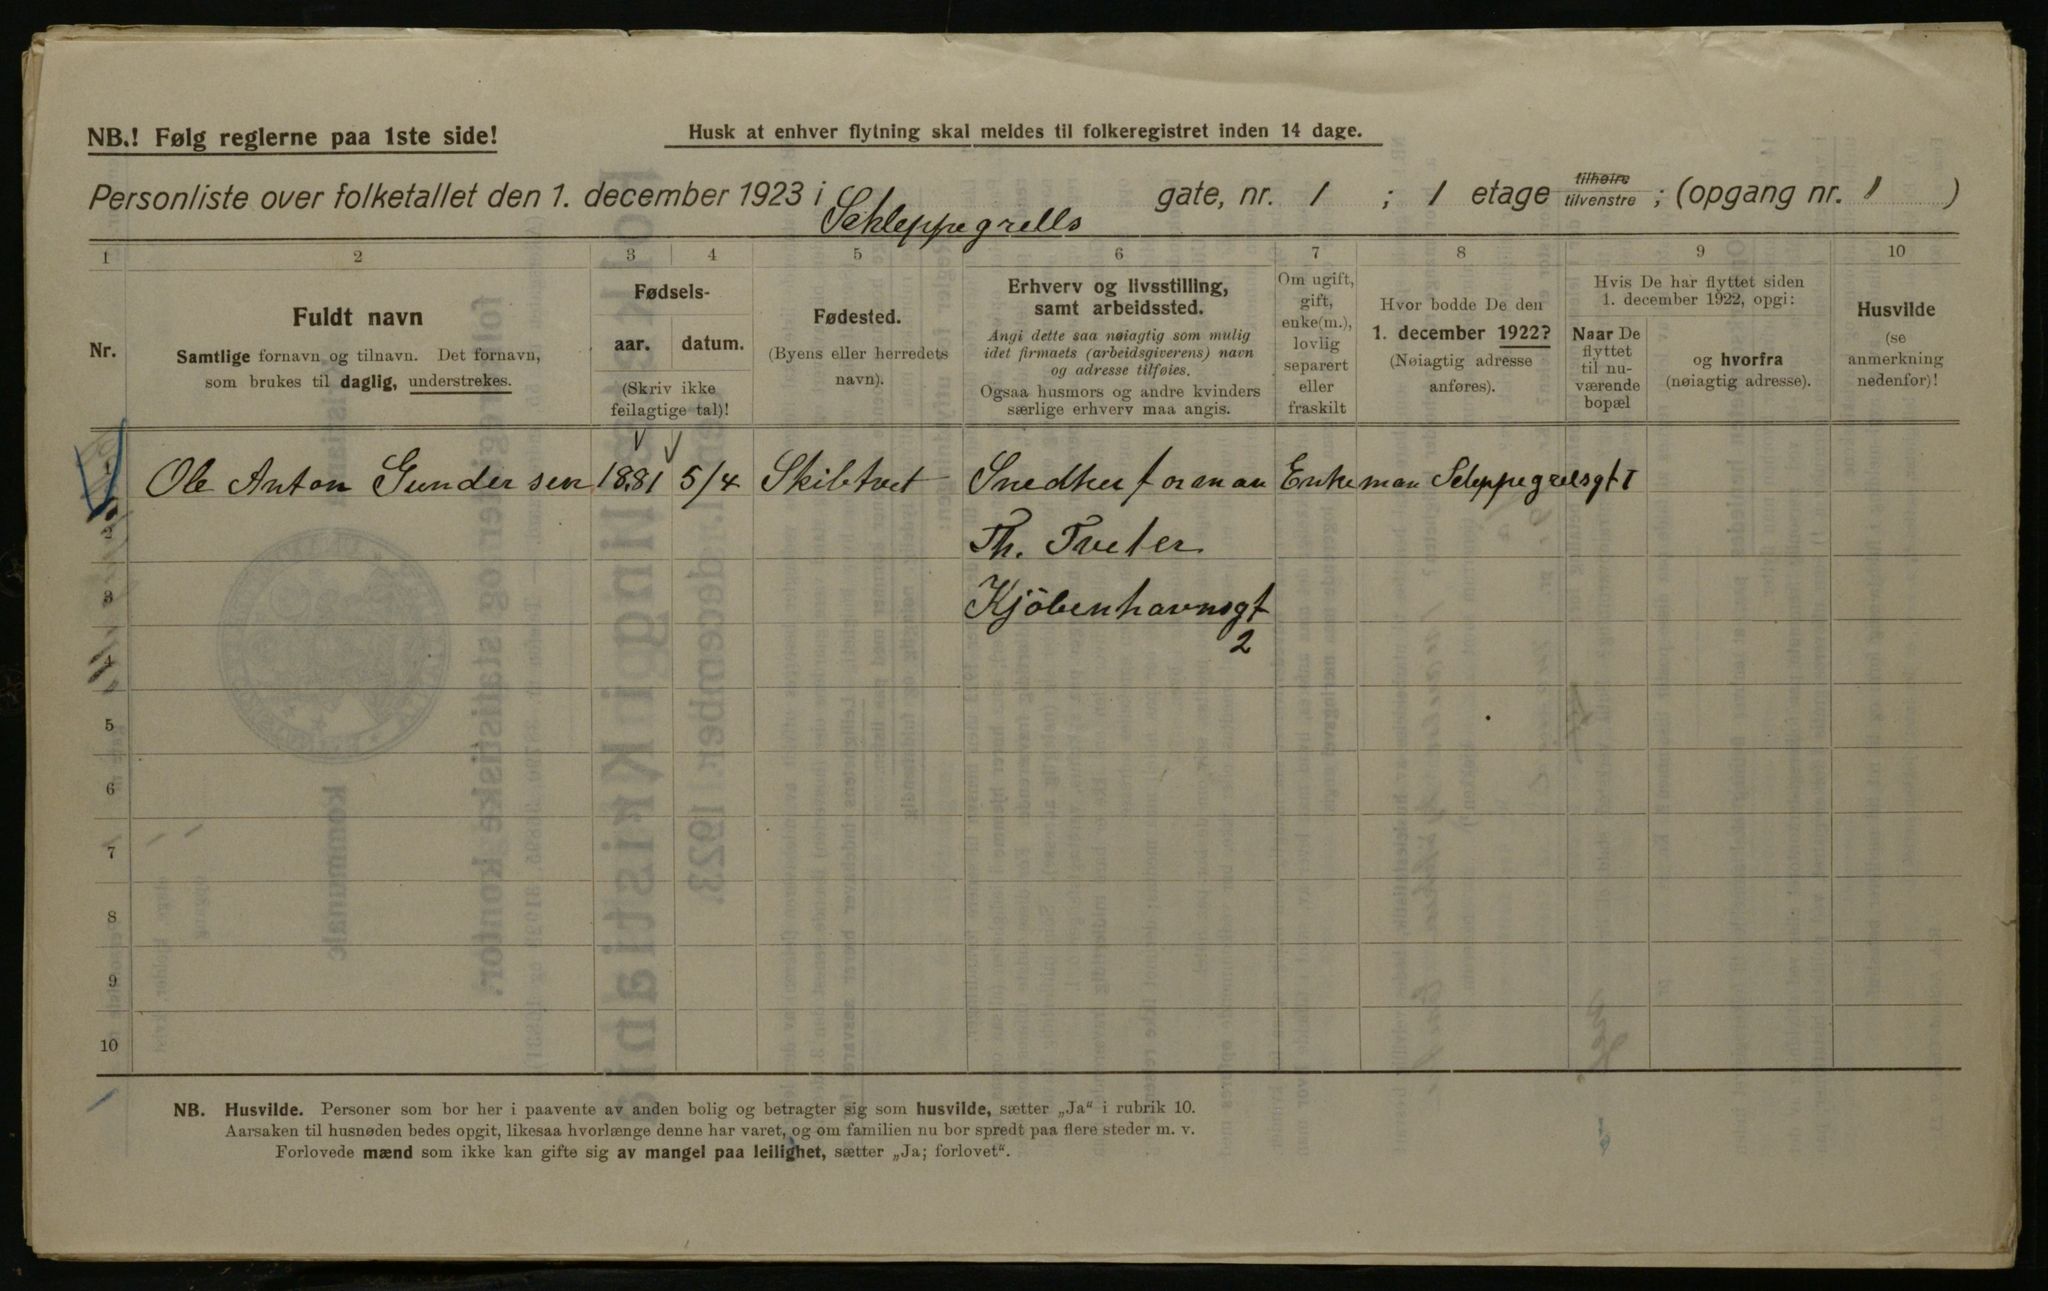 NB.! Følg reglerne paa 1ste side!
Husk at enhver flytning skal meldes til folkeregistret inden 14 dage.
Personliste over folketallet den 1. december 1923 i Schleppegrells gate, nr. 1 ; 1 etage tilhøire tilvenstre ; (opgang nr. 1 )
1 2 3 4 5 6 7 8 9 10
Nr.
Fuldt navn
Samtlige fornavn og tilnavn. Det fornavn,
som brukes til daglig, understrekes.
Fødsels-
aar. datum.
(Skriv ikke
feilagtige tal)!
Fødested.
(Byens eller herredets
navn).
Erhverv og livsstilling,
samt arbeidssted.
Angi dette saa nøiagtig som mulig
idet firmaets (arbeidsgiverens) navn
og adresse tilføies.
Ogsaa husmors og andre kvinders
særlige erhverv maa angis.
Om ugift,
gift,
enke(m.),
lovlig
separert
eller
fraskilt
Hvor bodde De den
1. december 1922?
(Nøiagtig adresse
anføres).
Hvis De har flyttet siden
1. december 1922, opgi:
Naar De
flyttet
til nu-
værende
bopæl
og hvorfra
(nøiagtig adresse).
Husvilde
(se
anmerkning
nedenfor)!
1 Ole Anton Gundersen 1881 5/4 Skibtvet Snedker forman Enkeman Scleppegrelsgt 1
2 Th. Tveter
3 Kjöbenhavnsgt
2
4
5
6
7
8
9
10
NB. Husvilde. Personer som bor her i paavente av anden bolig og betragter sig som husvilde, sætter „Ja“ i rubrik 10.
Aarsaken til husnøden bedes opgit, likesaa hvorlænge denne har varet, og om familien nu bor spredt paa flere steder m. v.
Forlovede mænd som ikke kan gifte sig av mangel paa leilighet, sætter „Ja; forlovet“.